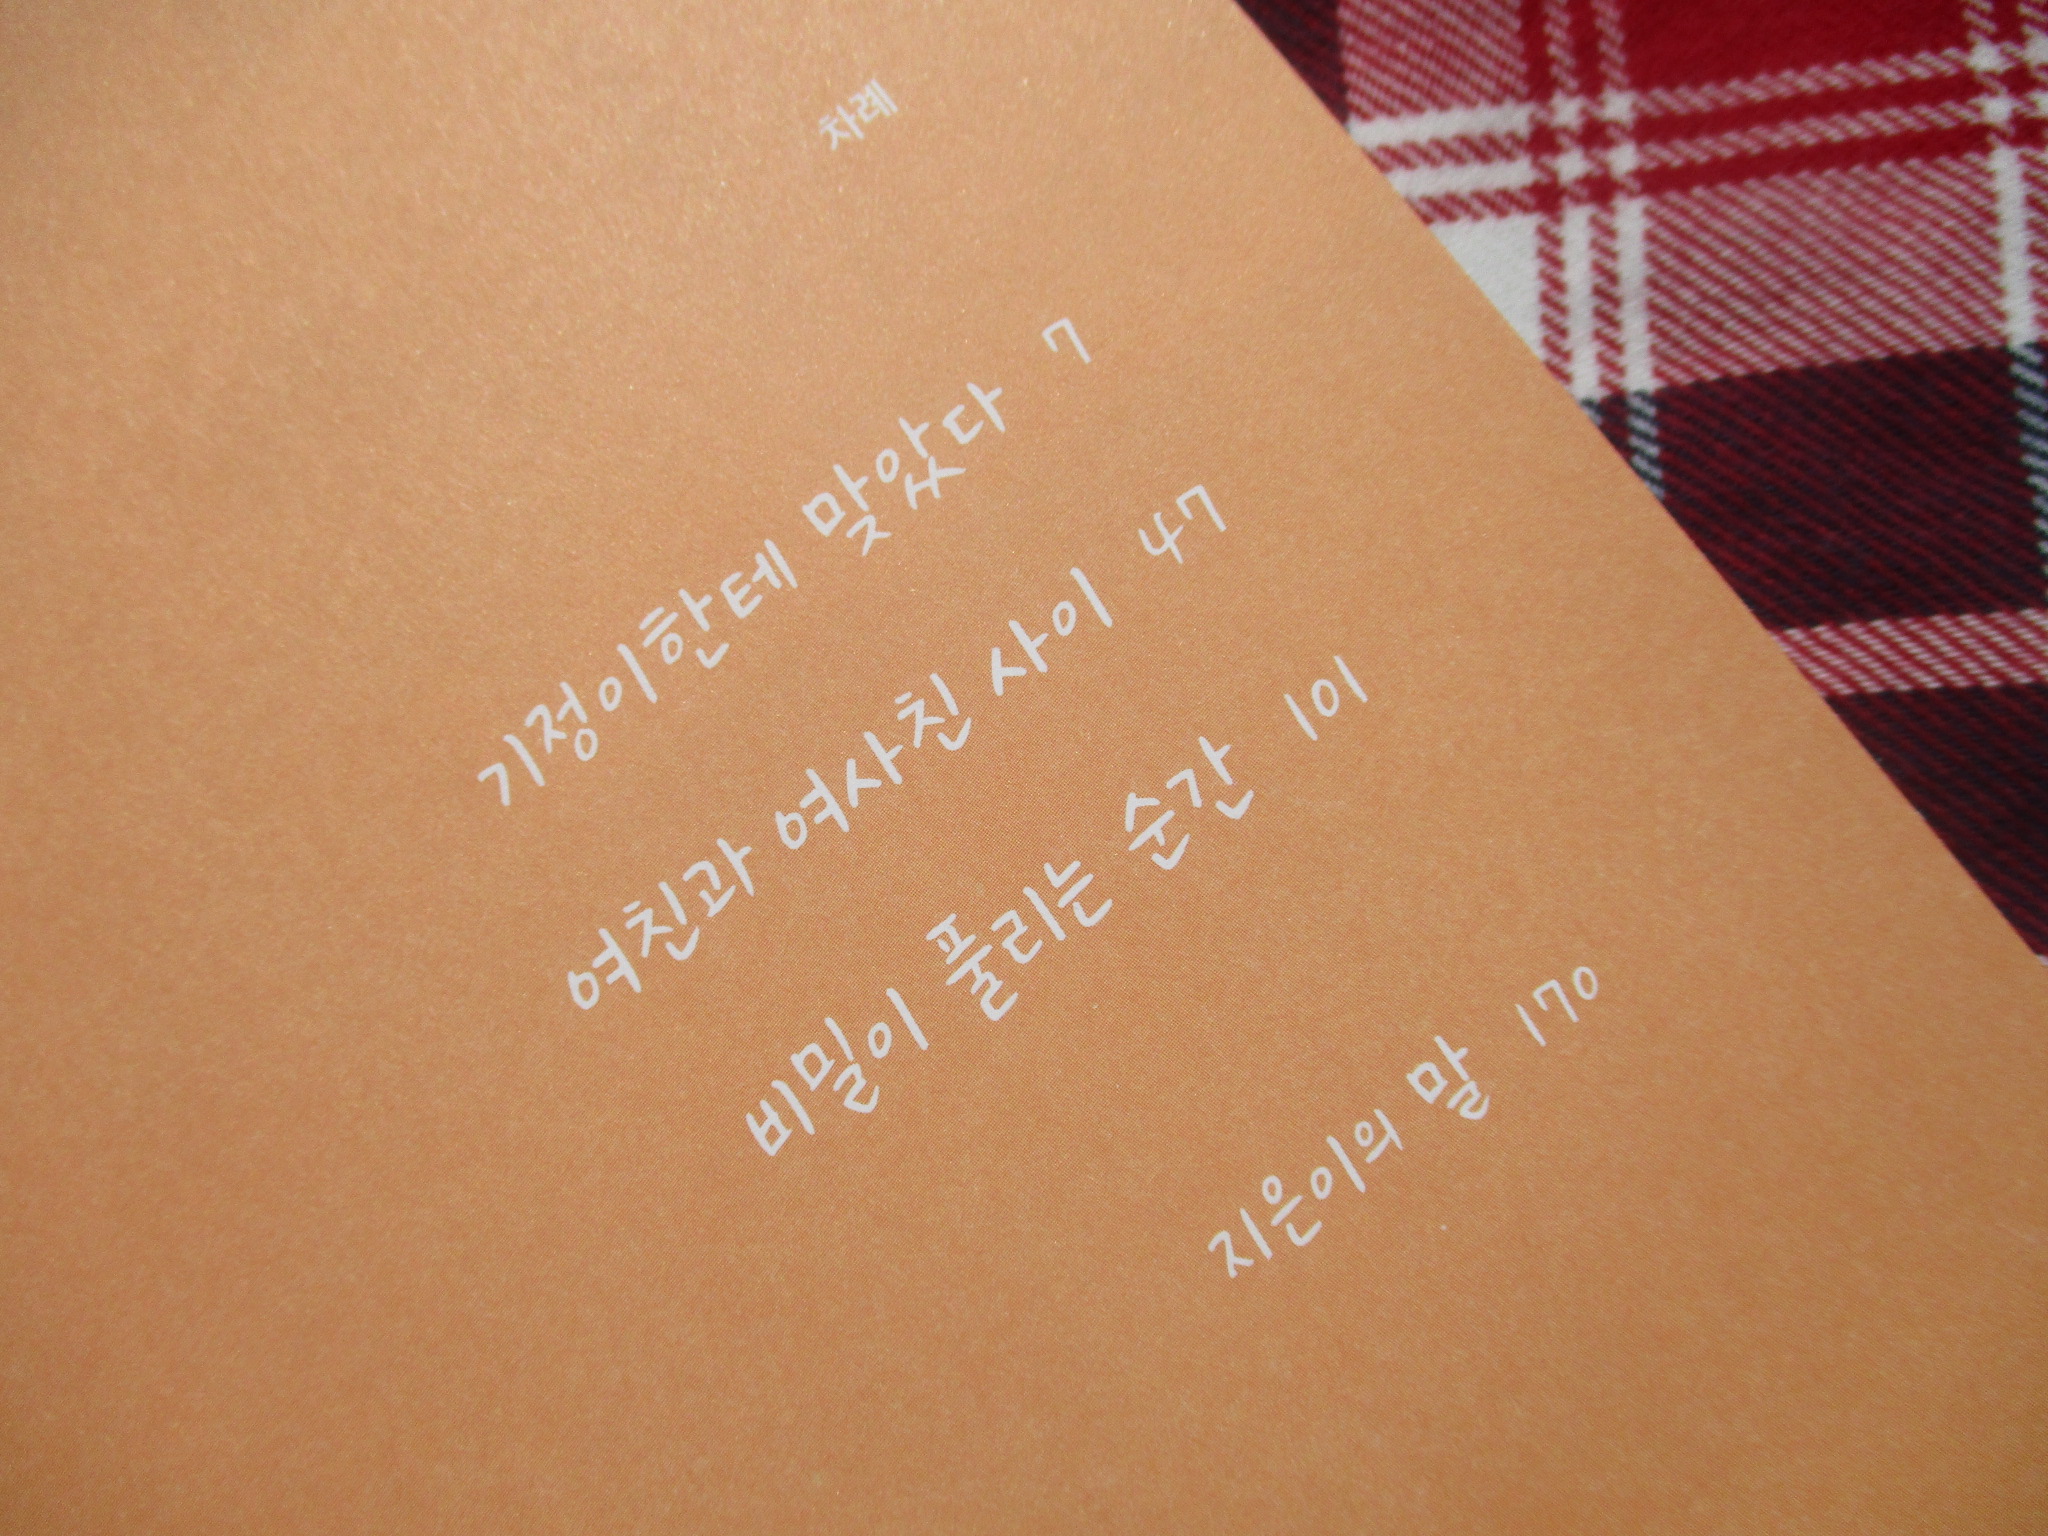 차례
기정이한테 맞았다 7
여친과 여사친 사이 47
비밀이 풀리는 순간 101
지은이의 말 170